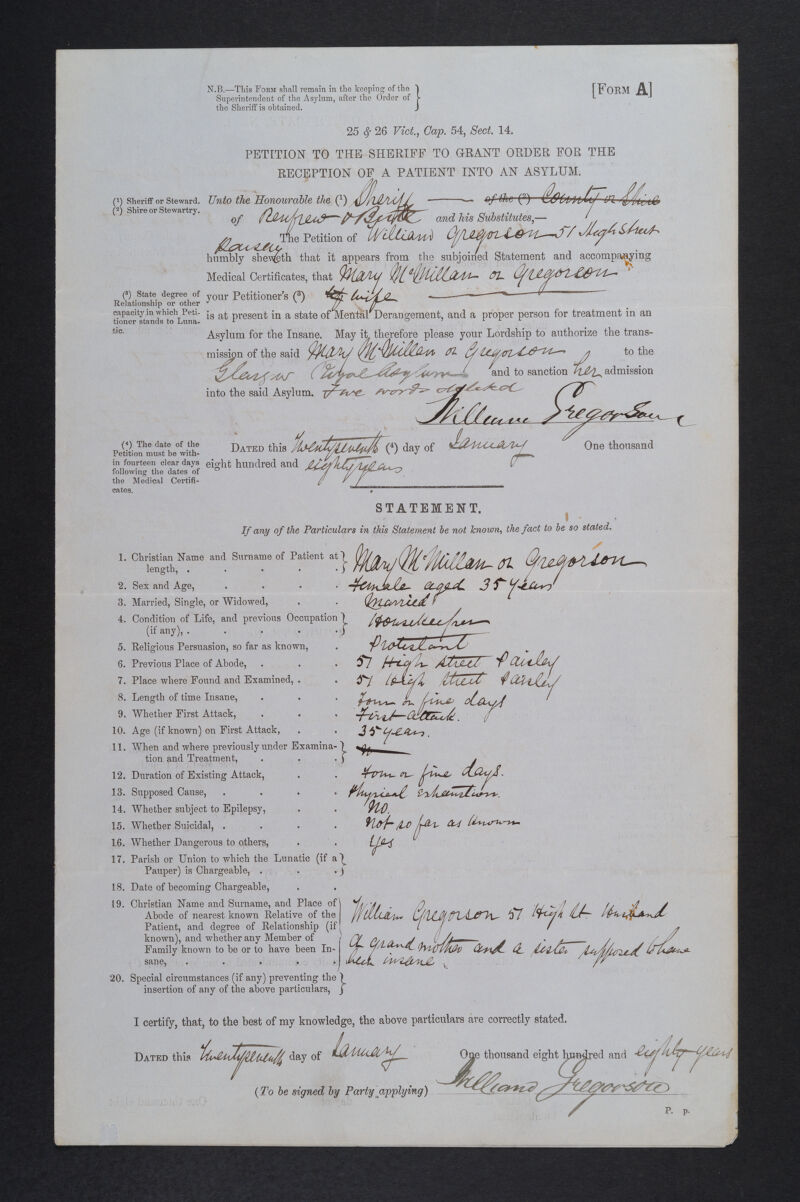 N.B.—This Form shall remain in the keeping of the
Superintendent of the Asylum, after the Order of
the Sheriff is obtained.
[Form A]
25 & 26 Vict., Cap. 54, Sect. 14.
PETITION TO THE SHERIFF TO GRANT ORDER FOR THE
RECEPTION OF A PATIENT INTO AN ASYLUM.
(¹) Sheriff or Steward.
(²) Shire or Stewartry.
Unto the Honourable the (¹) Sheriff of the (²) County or Shire
of Renfrew & Bute and his Substitutes,—
The Petition of William Gregorson 51 High Street
Paisley
humbly sheweth that it appears from the subjoined Statement and accompanying
Medical Certificates, that Mary McMillan or Gregorson
(³) State degree of
Relationship or other
capacity in which Peti-
tioner stands to Luna-
tic.
your Petitioner's (³) wife
is at present in a state of Mental Derangement, and a proper person for treatment in an
Asylum for the Insane. May it therefore please your Lordship to authorize the trans-
mission of the said Mary McMillan or Gregorson to the
Glasgow Royal Asylum and to sanction her admission
into the said Asylum. Five words deleted
William Gregorson
(⁴) The date of the
Petition must be with-
in fourteen clear days
following the dates of
the Medical Certifi-
cates.
Dated this Twentyseventh (⁴) day of January One thousand
eight hundred and eighty years
STATEMENT.
If any of the Particulars in this Statement be not known, the fact to be so stated.
1. Christian Name and Surname of Patient at
length, . Mary McMillan or Gregorson
2. Sex and Age, Female aged 35 years
3. Married, Single, or Widowed, Married
4. Condition of Life, and previous Occupation
(if any), . Housekeeper
5. Religious Persuasion, so far as known, Protestant
6. Previous Place of Abode, 51 High Street Paisley
7. Place where Found and Examined, 51 High Street Paisley
8. Length of time Insane, Four or five days
9. Whether First Attack, First attack.
10. Age (if known) on First Attack, 35 years.
11. When and where previously under Examina-
tion and Treatment,
12. Duration of Existing Attack, Four or five days.
13. Supposed Cause, Physical exhaustion.
14. Whether subject to Epilepsy, No.
15. Whether Suicidal, Not so far as known
16. Whether Dangerous to others, Yes
17. Parish or Union to which the Lunatic (if a
Pauper) is Chargeable,
18. Date of becoming Chargeable,
19. Christian Name and Surname, and Place of
Abode of nearest known Relative of the
Patient, and degree of Relationship (if
known), and whether any Member of
Family known to be or to have been In-
sane, William Gregorson 51 High St Husband
A grand mother and a sister supposed to have
been insane.
20. Special circumstances (if any) preventing the
insertion of any of the above particulars,
I certify, that, to the best of my knowledge, the above particulars are correctly stated.
Dated this Twentyseventh day of January One thousand eight hundred and eighty years
(To be signed by Party applying) William Gregorson
P. p.